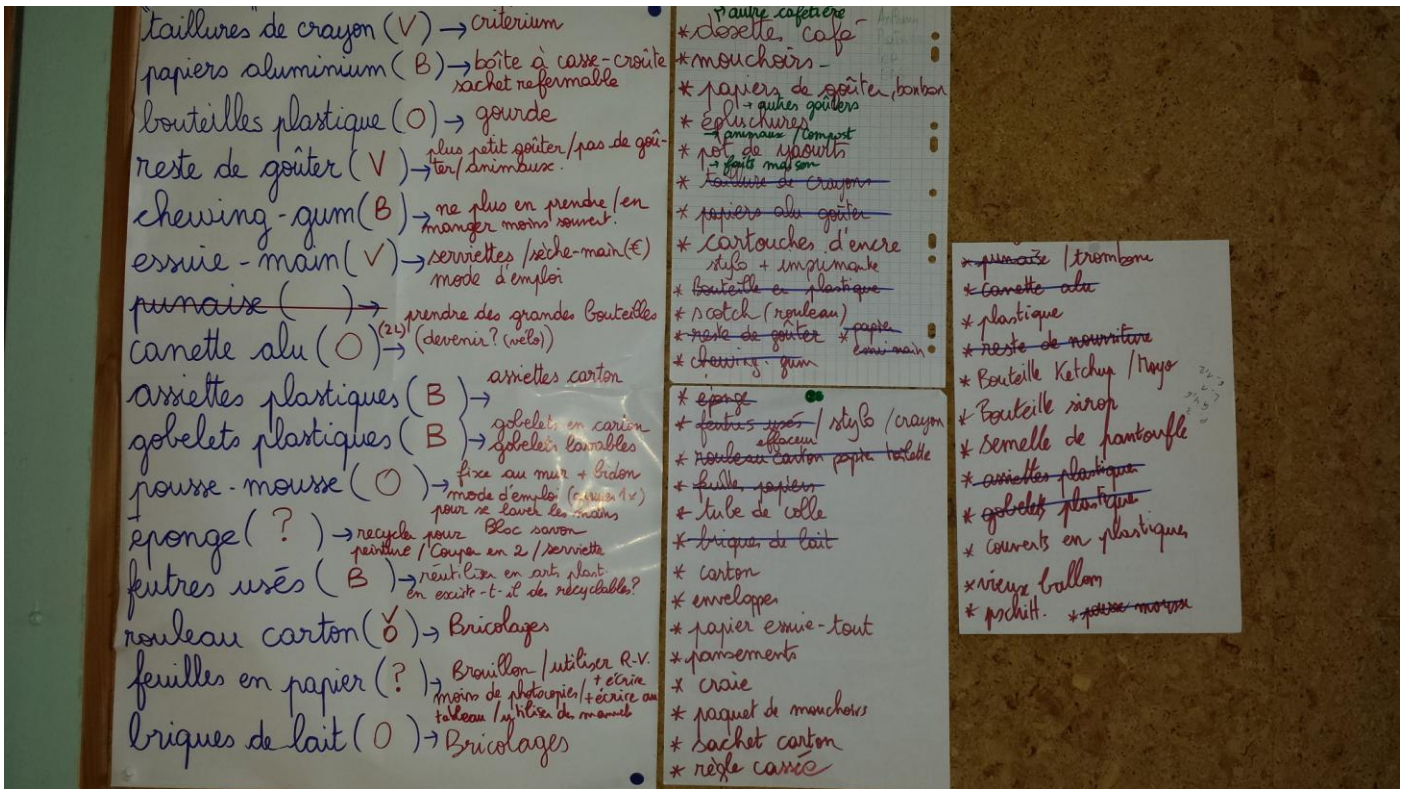 "taillures" de crayon (V) → criterium
papiers aluminium (B) → boîte à casse-croûte
sachet refermable
bouteilles plastique (O) → gourde
reste de goûter (V) → plus petit goûter/pas de goû-
ter/animaux.
chewing-gum (B) → ne plus en prendre/en
manger moins souvent.
essuie-main (V) → serviettes/sèche-main(€)
mode d'emploi
punaise ( ) →
canette alu (O) → prendre des grandes bouteilles
(2L) (devenir? (vélo))
assiettes plastiques (B) → assiettes carton
gobelets plastiques (B) → gobelets en carton
gobelets lavables
pousse-mousse (O) → fixe au mur + bidon
mode d'emploi (appuier 1x)
pour se laver les mains
Bloc savon
éponge (?) → recycler pour
peinture/Couper en 2/serviette
feutres usés (B) → réutiliser en arts plast.
en existe-t-il des recyclables?
rouleau carton (V O) → Bricolages
feuilles en papier (?) → Brouillon/utiliser R-V.
+ écrire
moins de photocopies/+écrire au
tableau/utiliser des manuels
briques de lait (O) → Bricolages
→ autre cafetière
* dosettes café
* mouchoirs -
* papiers de goûter, bonbon
→ autres goûters
* épluschures
→ animaux/compost
* pot de yaourts
→ faits maison
* taillure de crayons
* papiers alu goûter
* cartouches d'encre
stylo + imprimante
* Bouteille en plastique
* scotch (rouleau)
* reste de goûter * papier
essui main
* chewing-gum
* éponge
* feutres usés / stylo / crayon
effaceur
* rouleau carton papier toilette
* feuille, papiers
* tube de colle
* briques de lait
* carton
* enveloppes
* papier essuie-tout
* pansements
* craie
* paquet de mouchoirs
* sachet carton
* règle cassée
* punaise / trombone
* canette alu
* plastique
* reste de nourriture
* Bouteille Ketchup / Mayo
* Bouteille sirop
* semelle de pantoufle
* assiettes plastique
* gobelets plastique
* couverts en plastiques
* vieux ballon
* pschitt. * pousse mousse